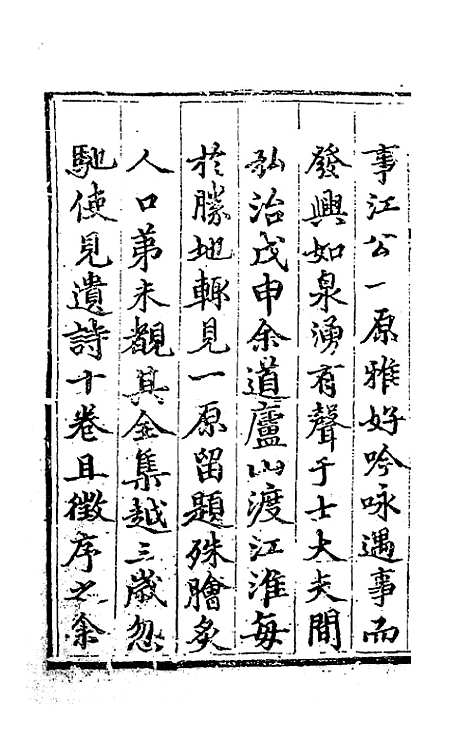 事江公一原雅好吟咏遇事而
發興如泉湧有聲于士大夫間
弘治戊申余道廬山渡江淮每
於勝地輒見一原留題殊膾炙
人口第未覩其全集越三歲忽
馳使見遺詩十卷且徵序之余